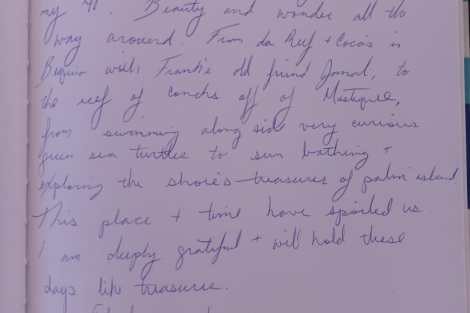 my 41. Beauty and wonder all the
way around. From da Reef + Coco's in
Bequia with Frank's old friend, to
the reef of conchs off of Mustique,
from swimming along side very curious
green sea turtles to sun bathing +
exploring the shore's treasures of palm island
This place + time have spoiled us
I am deeply grateful + will hold these
days like treasures.